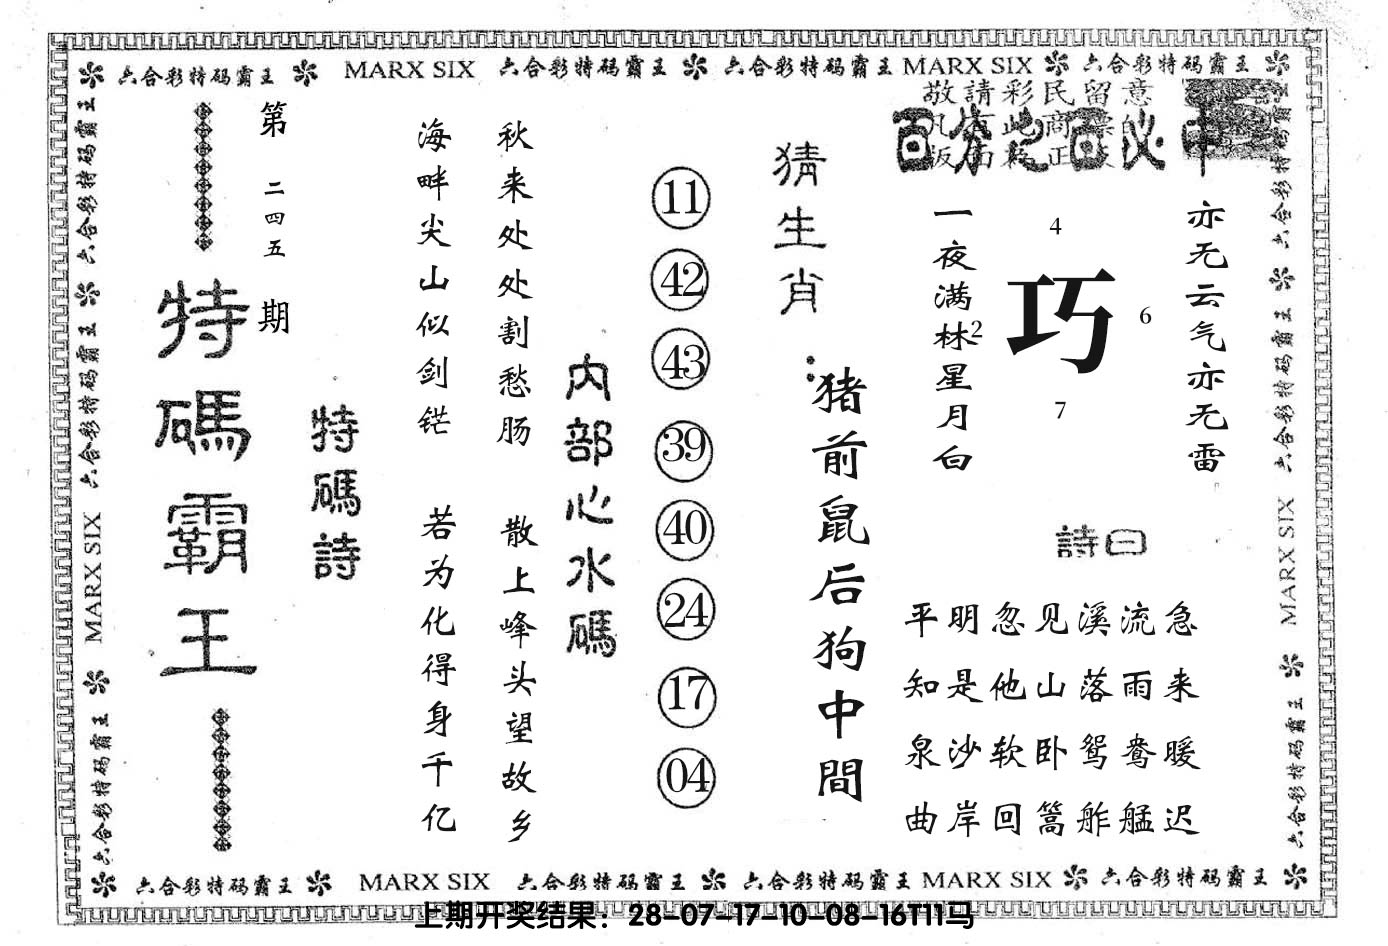 六合彩特码霸王 MARX SIX 六合彩特码霸王 六合彩特码霸王 MARX SIX 六合彩特码霸王
六合彩特码霸王 六合彩特码霸王 MARX SIX 六合彩特码霸王
六合彩特码霸王 六合彩特码霸王 MARX SIX 六合彩特码霸王
敬請彩民留意
百分之百必中
亦无云气亦无雷
一夜满林星月白
4
2
巧
6
7
詩曰
平明忽见溪流急
知是他山落雨来
泉沙软卧鸳鸯暖
曲岸回篙舴艋迟
猜生肖:
猪前鼠后狗中間
11
42
43
39
40
24
17
04
内部心水碼
秋来处处割愁肠
散上峰头望故乡
海畔尖山似剑铓
若为化得身千亿
特碼詩
第二四五期
特碼霸王
六合彩特码霸王 MARX SIX 六合彩特码霸王 六合彩特码霸王 MARX SIX 六合彩特码霸王
上期开奖结果：28-07-17-10-08-16T11马